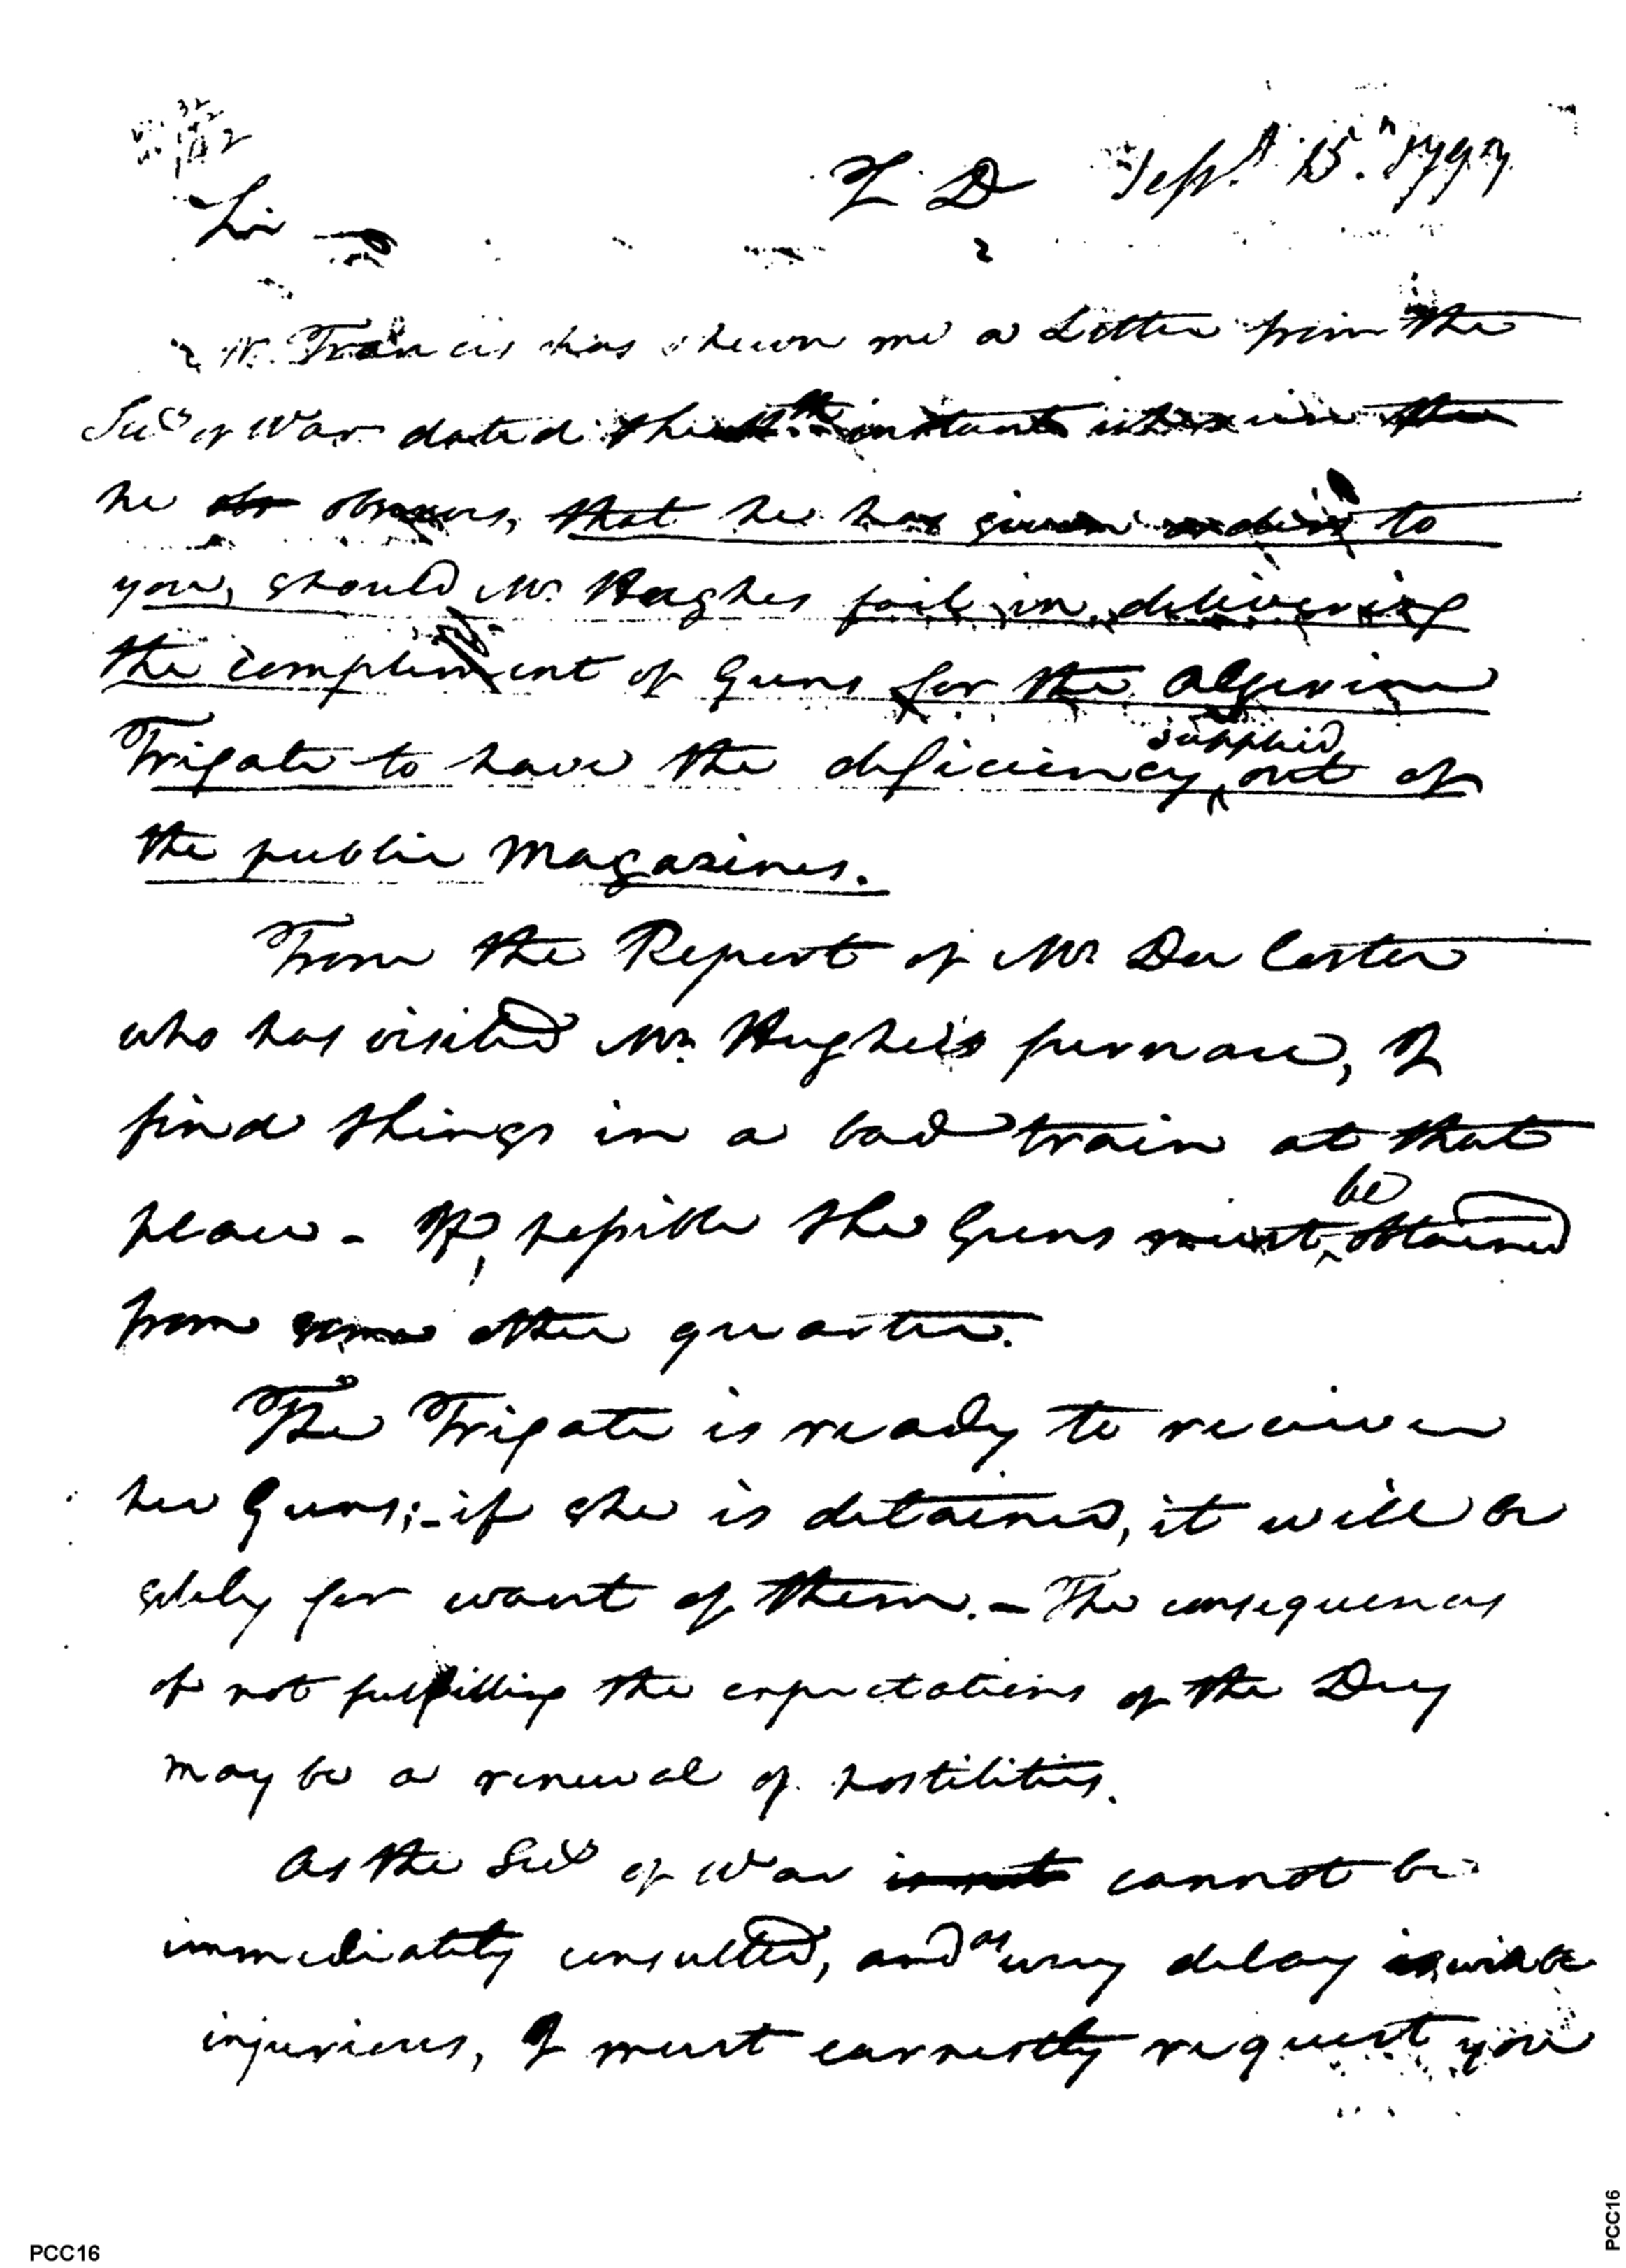 T. D Sept. 15th 1797
Sir
Mr. Francis has shewn me a Letter from the
Secy of War dated the instant wherein the
he obs observes, that he has given orders to
you, should Mr. Hughes fail in delivering
the compliment of Guns for the Algerine
Frigate to have the deficiency supplied out of
the public Magazines.
From the Report of Mr. De Coster
who has visited Mr. Hughes's furnace, I
find things in a bad train at that
place - If, possible the Guns must be obtained
from some other quarter.
The Frigate is ready to receive
her Guns;- if she is detained, it will be
solely for want of them. - The consequences
of not fulfilling the expectations of the Dey
may be a renewal of hostilities.
As the Secy of War is not cannot be
immediately consulted, and as every delay is will be
injurious, I must earnestly request you
PCC16
PCC16